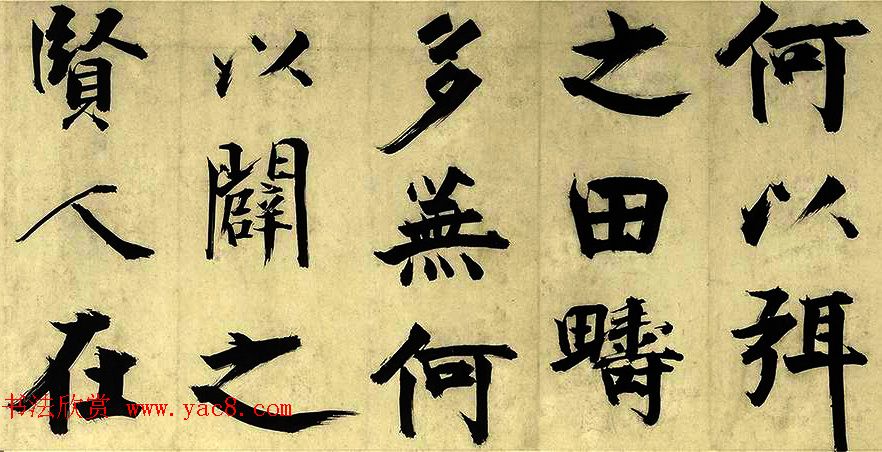 何以弭
之田疇
多蕪何
以闢之
賢人在
书法欣赏 www.yac8.com